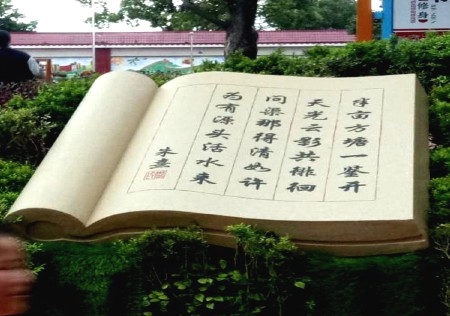 半亩方塘一鉴开
天光云影共徘徊
问渠那得清如许
为有源头活水来
朱熹